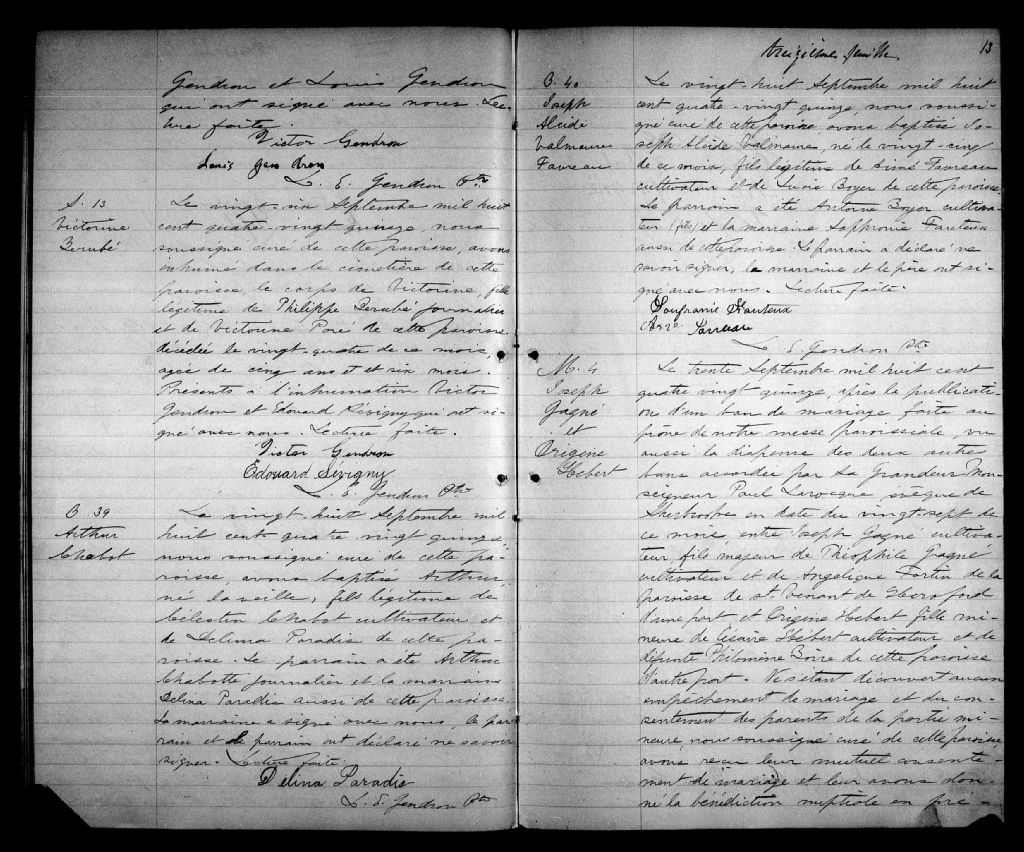 Gendron et Louis Gendron
qui ont signé avec nous. Lec-
ture faite.
Victor Gendron
Louis Gendron
L. E. Gendron Ptre
S. 13
Victorine
Berubé
Le vingt-six Septembre mil huit
cent quatre-vingt quinze, nous
soussigné curé de cette paroisse, avons
inhumé dans le cimetière de cette
paroisse le corps de Victorine, fille
légitime de Philippe Berubé journalier
et de Victorine Poré de cette paroisse
décédée le vingt-quatre de ce mois,
agée de cinq ans et et six mois.
Présents à l'inhumation Victor
Gendron et Edouard Sévigny qui ont si-
gné avec nous. Lecture faite.
Victor Gendron
Edouard Sévigny
L. E. Gendron Ptre
B. 39
Arthur
Chabot
Le vingt-huit Septembre mil
huit cent quatre vingt quinze,
nous soussigné curé de cette pa-
roisse, avons baptisé Arthur,
né la veille, fils légitime de
Célestin Chabot cultivateur et
de Delima Paradis de cette pa-
roisse. Le parrain a été Arthur
Chabotte journalier et la marraine
Delina Paradis aussi de cette paroisse.
La marraine a signé avec nous, le par
rain et le parrain ont déclaré ne savoir
signer. Lecture faite.
Delina Paradis
L. E. Gendron Ptre
treizième feuille
13
B. 40
Joseph
Alcide
Valmaure
Favreau
Le vingt-huit Septembre mil huit
cent quatre-vingt quinze, nous soussi-
gné curé de cette paroisse, avons baptisé Jo-
seph Alcide Valmaure, né le vingt-cinq
de ce mois, fils légitime de Aimé Favreau
cultivateur et de Lucie Boyer de cette paroisse.
Le parrain a été Antoine Boyer cultiva-
teur (fils) et la marraine Sophronie Fauteux
aussi de cette paroisse. Le parrain a déclaré ne
savoir signer, la marraine et le père ont si-
gné avec nous. Lecture faite.
Soufranie Fauteux
L. E. Gendron Ptre
M. 4
Joseph
Gagné
et
Origine
Hebert
Le trente Septembre mil huit cent
quatre vingt quinze, après la publicati-
on d'un ban de mariage faite au
prône de notre messe paroissiale vu
aussi la dispense des deux autre
bans accordée par Sa Grandeur Mon-
seigneur Paul Larocque évêque de
Sherbrooke en date du vingt-sept de
ce mois, entre Joseph Gagné cultiva-
teur, fils majeur de Théophile Gagné
cultivateur et de Angelique Fortin de la
paroisse de St. Venant de Hereford
d'une part et Origine Hebert fille mi-
neure de Césaire Hébert cultivateur et de
défunte Philomène Boire de cette paroisse
d'autre part. Ne s'étant découvert aucun
empêchement de mariage et du con-
sentement des parents de la partie mi-
neure, nous soussigné curé de cette paroisse,
avons reçu leur mutuel consente-
ment de mariage et leur avons don-
né la bénédiction nuptiale en pré-